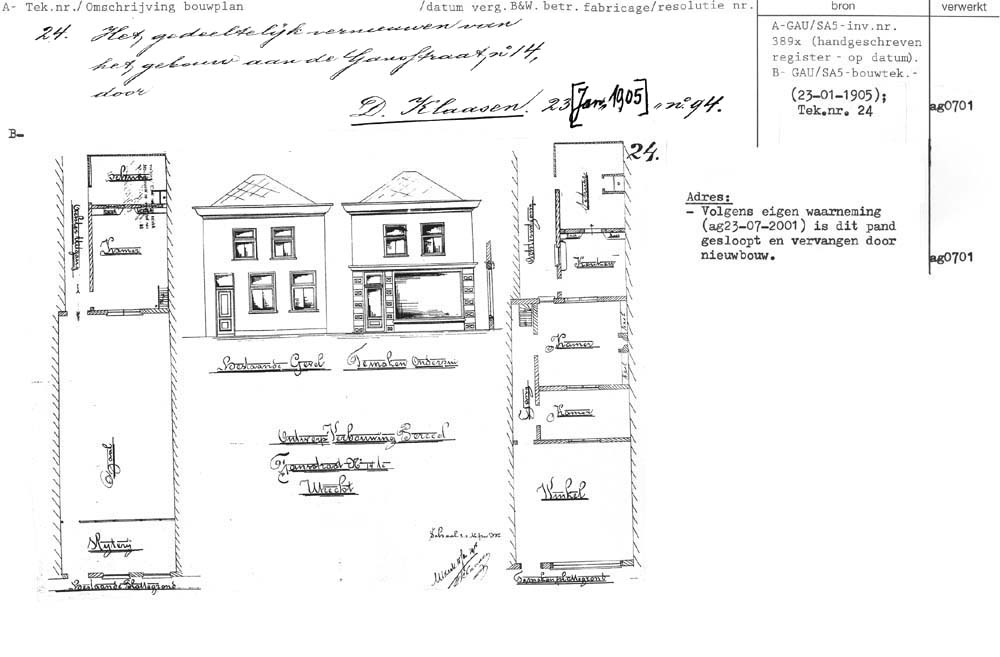 A- Tek.nr./Omschrijving bouwplan /datum verg.B&W. betr. fabricage/resolutie nr. bron verwerkt
24. Het, gedeeltelijk vernieuwen van
het, gebouw aan de Gansstraat, nº 14,
door
D. Klaasen. 23 [Jan. 1905] nº 94.
A-GAU/SA5-inv.nr.
389x (handgeschreven
register - op datum).
B- GAU/SA5-bouwtek.-
(23-01-1905);
Tek.nr. 24
ag0701
B-
24.
Adres:
- Volgens eigen waarneming
(ag23-07-2001) is dit pand
gesloopt en vervangen door
nieuwbouw.
ag0701
Schuur
Kamer
Keuken
Kamer
Gang
Kamer
Zaal
Winkel
Slijterij
Bestaande Gevel
Te maken Onderpui
Ontwerp Verbouwing Perceel
Gansstraat Nº 14
Utrecht
Schaal
Bestaande Plattegrond
Te maken plattegrond